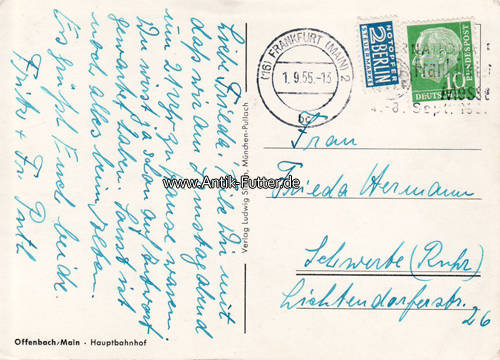 Liebe Frieda, teile Dir mit
daß wir am Samstagabend
um 2 Uhr zu Hause waren.
Du wirst ja schon auf Antwort
gewartet haben. Sonst ist
noch alles beim Alten.
Es grüßt Euch beide
Fritz + Fr.
Offenbach/Main - Hauptbahnhof
Verlag Ludwig München-Pullach
(16) FRANKFURT (MAIN) 2
1.9.55.-13
NOTOPFER
2 BERLIN
STEUERMARKE
DEUTSCHE BUNDESPOST
10
Messe
Sept.
www.Antik-Futter.de
Frau
Frieda Hermann
Schwerte (Ruhr)
Lichtendorferstr.
26